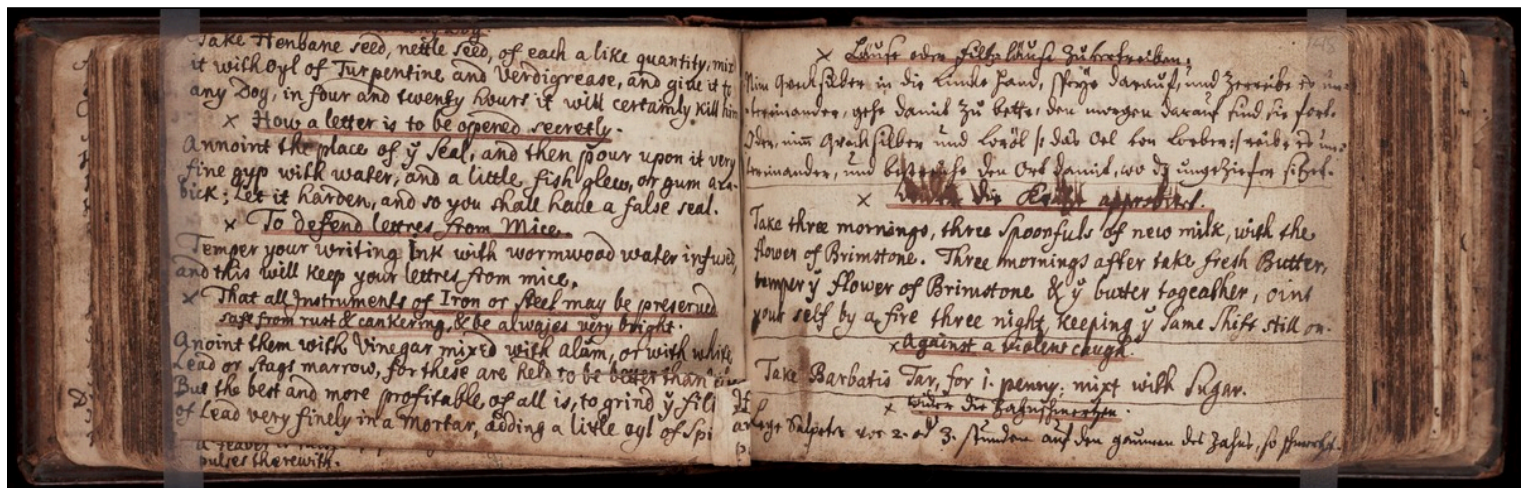 Take Henbane seed, nettle seed, of each a like quantity, mix
it with oyl of Turpentine and Verdigrease, and give it to
any Dog, in four and twenty hours it will certainly kill him
× How a letter is to be opened secretly.
Annoint the place of ÿ Seal, and then pour upon it very
fine gyp with water, and a little fish glew, or gum ara-
bick: let it harden, and so you shall have a false seal.
× To defend lettres from Mice.
Temper your writing Ink with wormwood water infused,
and this will keep your lettres from mice.
× That all Instruments of Iron or steel may be preserved
safe from rust & cankering, & be alwajes very bright.
Anoint them with Vinegar mixed with alum, or with white
Lead or Stags marrow, for these are held to be better than
But the best and more profitable of all is, to grind ÿ fili
of Lead very finely in a mortar, adding a little oyl of Spi
pulses therewith.
× Läuse oder Filtzläuse Zuvertreiben.
Nim Quecksilber in die Linke Hand, speÿe darauf, und Zerreibe es un-
tereinander, gehe damit Zu bette, den morgen darauf sind sie fort.
Oder, nim̄ Quecksilber und Loröl /: das Oel von Lorber :/ reibe es un-
tereinander, und bestreiche den Ort damit, wo dz ungeziefer sitzet.
× die Krätze approbiret.
Take three mornings, three Spoonfuls of new milk, with the
flower of Brimstone. Three mornings after take fresh Butter,
temper ÿ flower of Brimstone & ÿ butter togeather, oint
your self by a fire three night, keeping ÿ same Shift still on.
× Against a violent caugh.
Take Barbatis Tar, for 1. penny; mixt with Sugar.
× wider die Zahnschmertzen.
Lege Salpeter vor 2. od 3. stunden auf den gaumen des Zahns, so